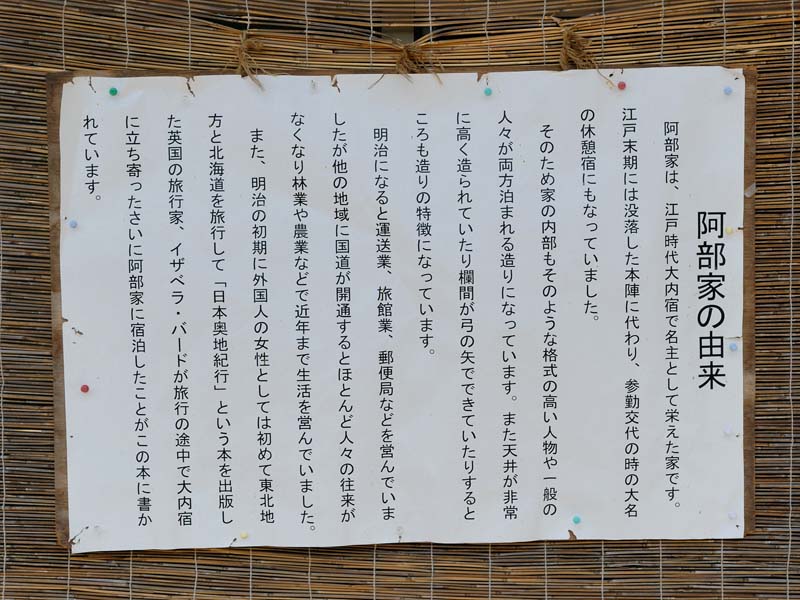 阿部家の由来
阿部家は、江戸時代大内宿で名主として栄えた家です。
江戸末期には没落した本陣に代わり、参勤交代の時の大名
の休憩宿にもなっていました。
そのため家の内部もそのような格式の高い人物や一般の
人々が両方泊まれる造りになっています。また天井が非常
に高く造られていたり欄間が弓の矢でできていたりすると
ころも造りの特徴になっています。
明治になると運送業、旅館業、郵便局などを営んでいま
したが他の地域に国道が開通するとほとんど人々の往来が
なくなり林業や農業などで近年まで生活を営んでいました。
また、明治の初期に外国人の女性としては初めて東北地
方と北海道を旅行して「日本奥地紀行」という本を出版し
た英国の旅行家、イザベラ・バードが旅行の途中で大内宿
に立ち寄ったさいに阿部家に宿泊したことがこの本に書か
れています。